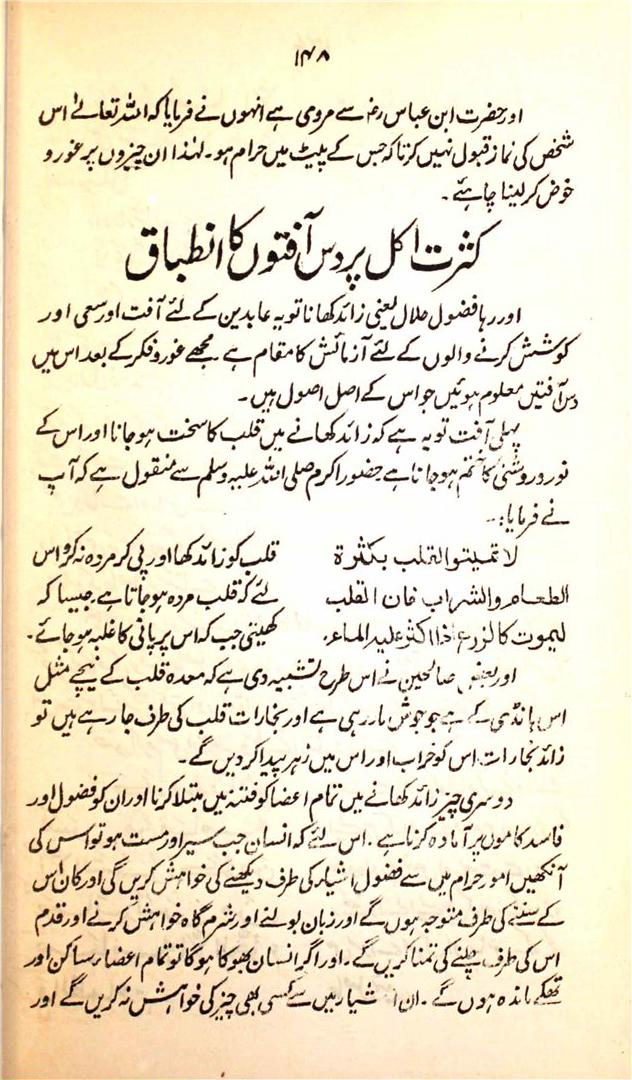 ۱۴۸
اور حضرت ابن عباس رضؓ سے مروی ہے انہوں نے فرمایا کہ اللہ تعالےٰ اس
شخص کی نماز قبول نہیں کرتا کہ جس کے پیٹ میں حرام ہو۔ لہٰذا ان چیزوں پر غور و
خوض کر لینا چاہئے۔
کثرت اکل پر دس آفتوں کا انطباق
اور رہا فضول حلال یعنی زائد کھانا تو یہ عابدین کے لئے آفت اور سعی اور
کوشش کرنے والوں کے لئے آزمائش کا مقام ہے۔ مجھے غور و فکر کے بعد اس میں
دس آفتیں معلوم ہوئیں جو اس کے اصل اصول ہیں۔
پہلی آفت تو یہ ہے کہ زائد کھانے میں قلب کا سخت ہو جانا اور اس کے
نور و روشنی کا ختم ہو جانا ہے حضور اکرم صلی اللہ علیہ وسلم سے منقول ہے کہ آپ
نے فرمایا:۔
لا تميتوا القلب بكثرة
الطعام والشراب فان القلب
ليموت كالزرع اذا اكثر عليه الماء۔
قلب کو زائد کھا اور پی کر مردہ نہ کرو اس
لئے کہ قلب مردہ ہو جاتا ہے۔ جیسا کہ
کھیتی جب کہ اس پر پانی کا غلبہ ہو جائے۔
اور بعض صالحین نے اس طرح تشبیہ دی ہے کہ معدہ قلب کے نیچے مثل
اس ہانڈی کے ہے جو جوش مار رہی ہے اور بخارات قلب کی طرف جا رہے ہیں تو
زائد بخارات اس کو خراب اور اس میں زہر پیدا کر دیں گے۔
دوسری چیز زائد کھانے میں تمام اعضا کو فتنہ میں مبتلا کرنا اور ان کو فضول اور
فاسد کاموں پر آمادہ کرنا ہے۔ اس لئے کہ انسان جب سیر اور مست ہو تو اس کی
آنکھیں امور حرام میں سے فضول اشیاء کی طرف دیکھنے کی خواہش کریں گی اور کان اس
کے سننے کی طرف متوجہ ہوں گے اور زبان بولنے اور شرم گاہ خواہش کرنے اور قدم
اس کی طرف چلنے کی تمنا کریں گے۔ اور اگر انسان بھوکا ہوگا تو تمام اعضاء ساکن اور
تھکے ماندہ ہوں گے۔ ان اشیار میں سے کسی بھی چیز کی خواہش نہ کریں گے اور